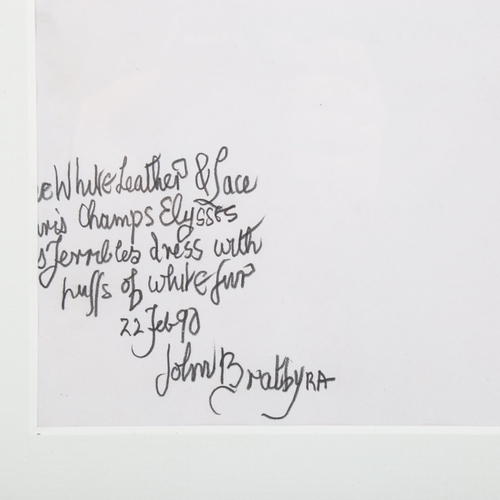 White Leather & Lace
Champs Elysses
Terribles dress with
puffs of white fur
22 Feb 90
John Bratby RA